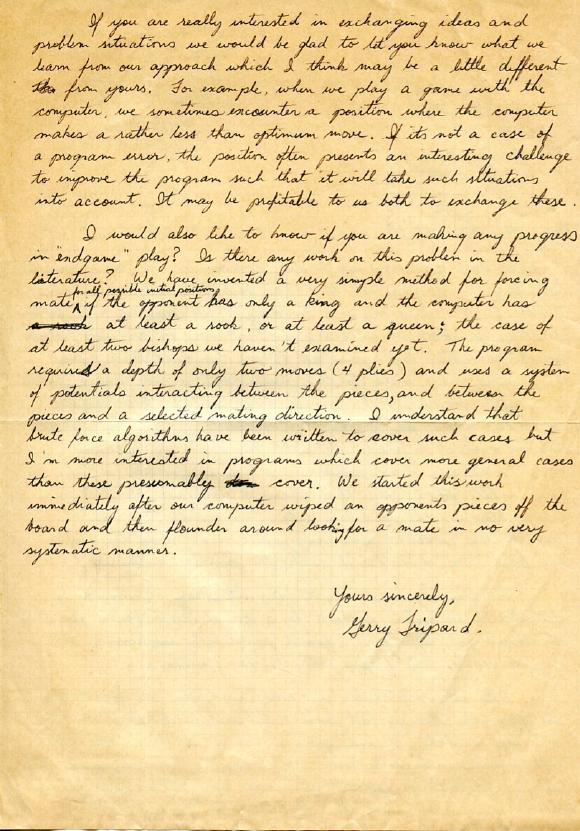 If you are really interested in exchanging ideas and
problem situations we would be glad to let you know what we
learn from our approach which I think may be a little different
from yours. For example, when we play a game with the
computer, we sometimes encounter a position where the computer
makes a rather less than optimum move. If it's not a case of
a program error, the position often presents an interesting challenge
to improve the program such that it will take such situations
into account. It may be profitable to us both to exchange these.
I would also like to know if you are making any progress
in "endgame" play? Is there any work on this problem in the
literature? We have invented a very simple method for forcing
for all possible initial positions
mate if the opponent has only a king and the computer has
at least a rook, or at least a queen; the case of
at least two bishops we haven't examined yet. The program
requires a depth of only two moves (4 plies) and uses a system
of potentials interacting between the pieces, and between the
pieces and a selected mating direction. I understand that
brute force algorithms have been written to cover such cases but
I'm more interested in programs which cover more general cases
than these presumably cover. We started this work
immediately after our computer wiped an opponents pieces off the
board and then flounder around looking for a mate in no very
systematic manner.
Yours sincerely,
Gerry Tripard.